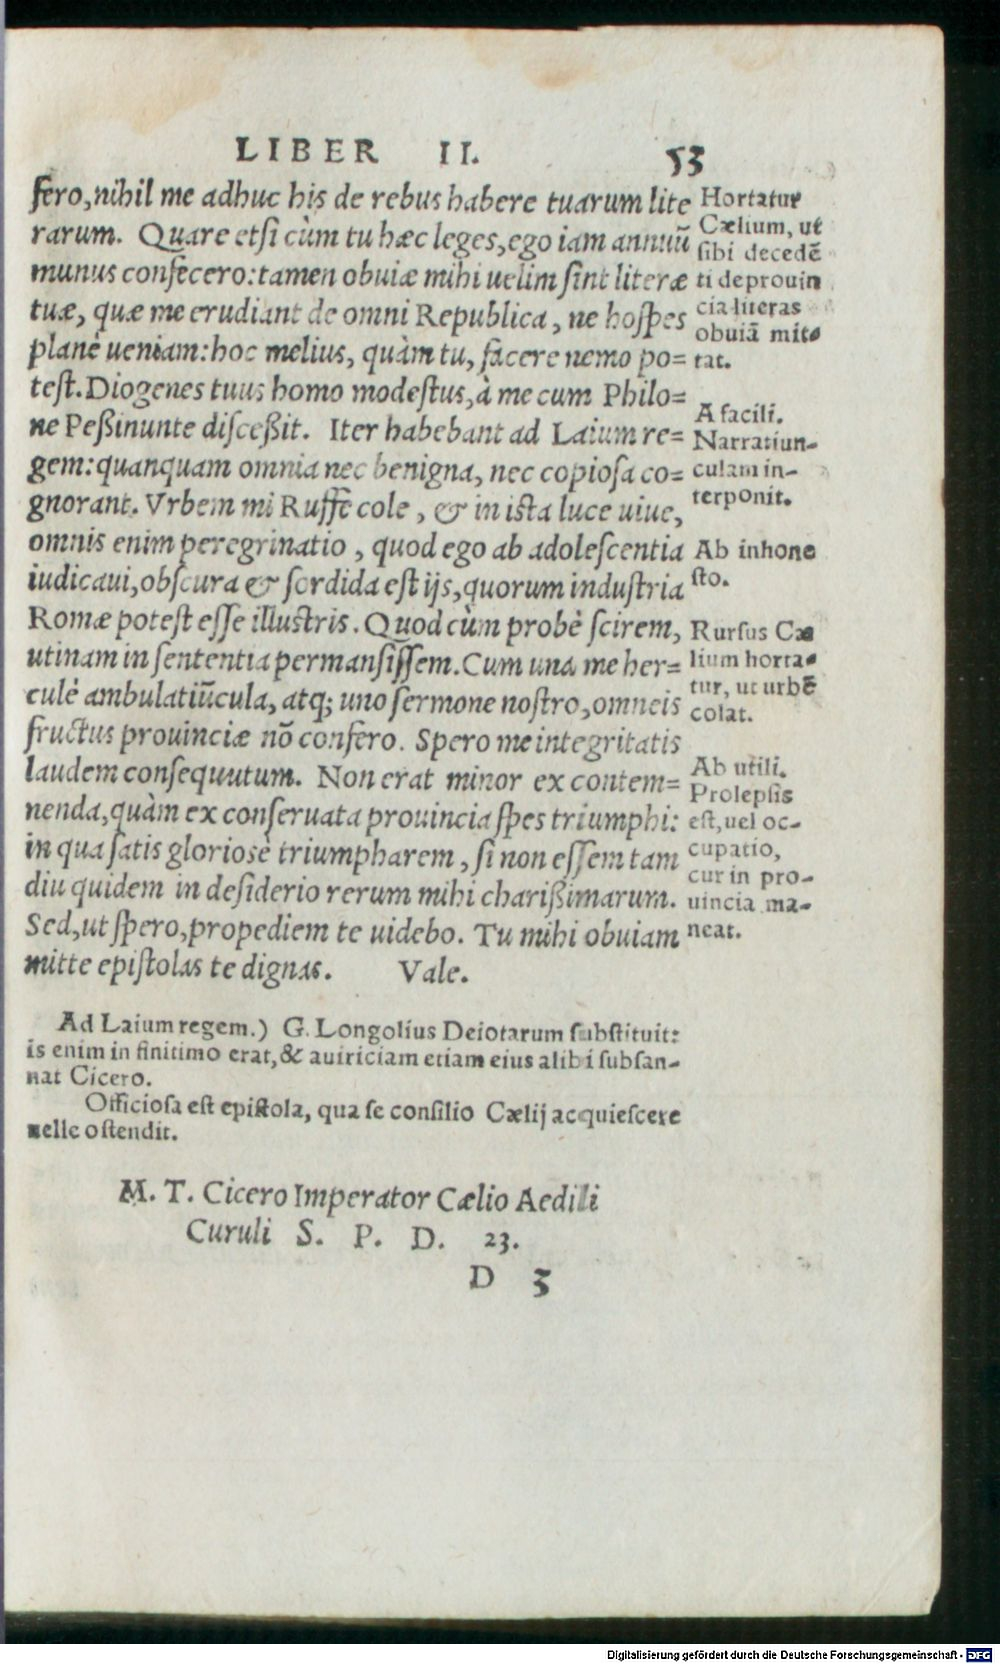 LIBER II. 53
fero, nihil me adhuc his de rebus habere tuarum lite
rarum. Quare etsi cùm tu hæc leges, ego iam annuũ
munus confecero: tamen obuiæ mihi uelim sint literæ
tuæ, quæ me erudiant de omni Republica, ne hospes
planè ueniam: hoc melius, quàm tu, facere nemo po=
test. Diogenes tuus homo modestus, à me cum Philo=
ne Peßinunte disceßit. Iter habebant ad Laium re=
gem: quanquam omnia nec benigna, nec copiosa co=
gnorant. Vrbem mi Ruffe cole, & in ista luce uiue,
omnis enim peregrinatio, quod ego ab adolescentia
iudicaui, obscura & sordida est ijs, quorum industria
Romæ potest esse illustris. Quod cùm probè scirem,
utinam in sententia permansissem. Cum una me her=
culè ambulatiũcula, atq; uno sermone nostro, omneis
fructus prouinciæ nõ confero. Spero me integritatis
laudem consequutum. Non erat minor ex contem=
nenda, quàm ex conseruata prouincia spes triumphi:
in qua satis gloriosè triumpharem, si non essem tam
diu quidem in desiderio rerum mihi charißimarum.
Sed, ut spero, propediem te uidebo. Tu mihi obuiam
mitte epistolas te dignas. Vale.
Hortatur
Cælium, ut
sibi decedẽ
ti de prouin
cia literas
obuiã mit-
tat.
A facili.
Narratiun-
culam in-
terponit.
Ab inhone
sto.
Rursus Cæ
lium horta-
tur, ut urbẽ
colat.
Ab utili.
Prolepsis
est, uel oc-
cupatio,
cur in pro-
uincia ma-
neat.
Ad Laium regem.) G. Longolius Deiotarum substituit:
is enim in finitimo erat, & auiriciam etiam eius alibi subsan-
nat Cicero.
Officiosa est epistola, qua se consilio Cælij acquiescere
uelle ostendit.
M. T. Cicero Imperator Cælio Aedili
Curuli S. P. D. 23.
D 3
Digitalisierung gefördert durch die Deutsche Forschungsgemeinschaft - DFG